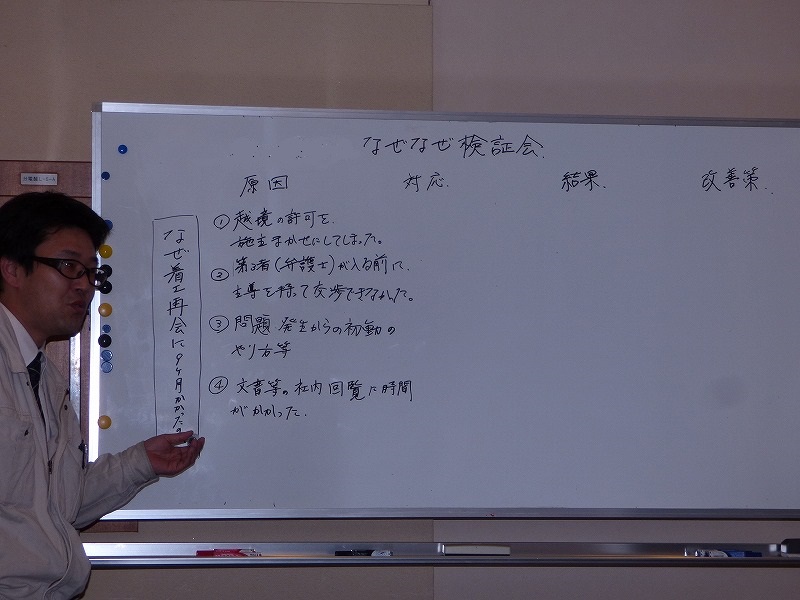 なぜなぜ検証会
原因 対応. 結果. 改善策.
なぜ着工再会に9ヶ月かかった
①越境の許可を.
施主まかせにしてしまった。
②第3者(弁護士)が入る前に.
主導を持って交渉できなかった。
③問題発生からの初動の
やり方等
④文書等の社内回覧に時間
がかかった.